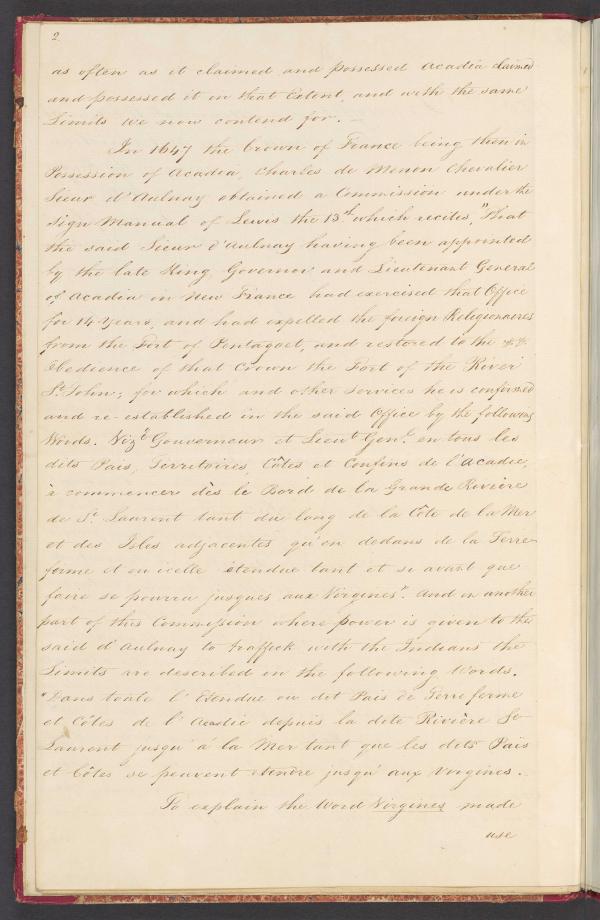 2
as often as it claimed and possessed Acadia claimed
and possessed it in that Extent, and with the same
Limits we now contend for. —
In 1647 the Crown of France being then in
Possession of Acadia, Charles de Menon Chevalier
Sieur d'Aulnay obtained a Commission under the
Sign Manual of Lewis the 13th which recites, "That
the said Sieur d'Aulnay having been appointed
by the late King, Governor and Lieutenant General
of Acadia in New France had exercised that Office
for 14 Years, and had expelled the foreign Religionaires
from the Fort of Pentagoet, and restored to the
Obedience of that Crown the Fort of the River
St John; for which and other services he is confirmed
and re-established in the said Office by the following
Words. Vizt Gouverneur et Lieut Genl en tous les
dits Païs, Territoires, Côtes et Confins de l'Acadie,
à commencer dès le Bord de la Grande Rivière
de St Laurent tant du long de la Côte de la Mer
et des Isles adjacentes qu'en dedans de la Terre-
ferme et en icelle étendue tant et si avant que
faire se pourra jusques aux Virgines". And in another
part of this Commission where power is given to the
said d'Aulnay to traffick with the Indians the
Limits are described in the following Words.
"Dans toute l'Etendue ou dit Païs de Terre ferme
et Côtes de l'Acadie depuis la dite Rivière St
Laurent jusqu'à la Mer tant que les dits Païs
et Côtes se peuvent étendre jusqu'aux Virgines.
To explain the Word Virgines made
use